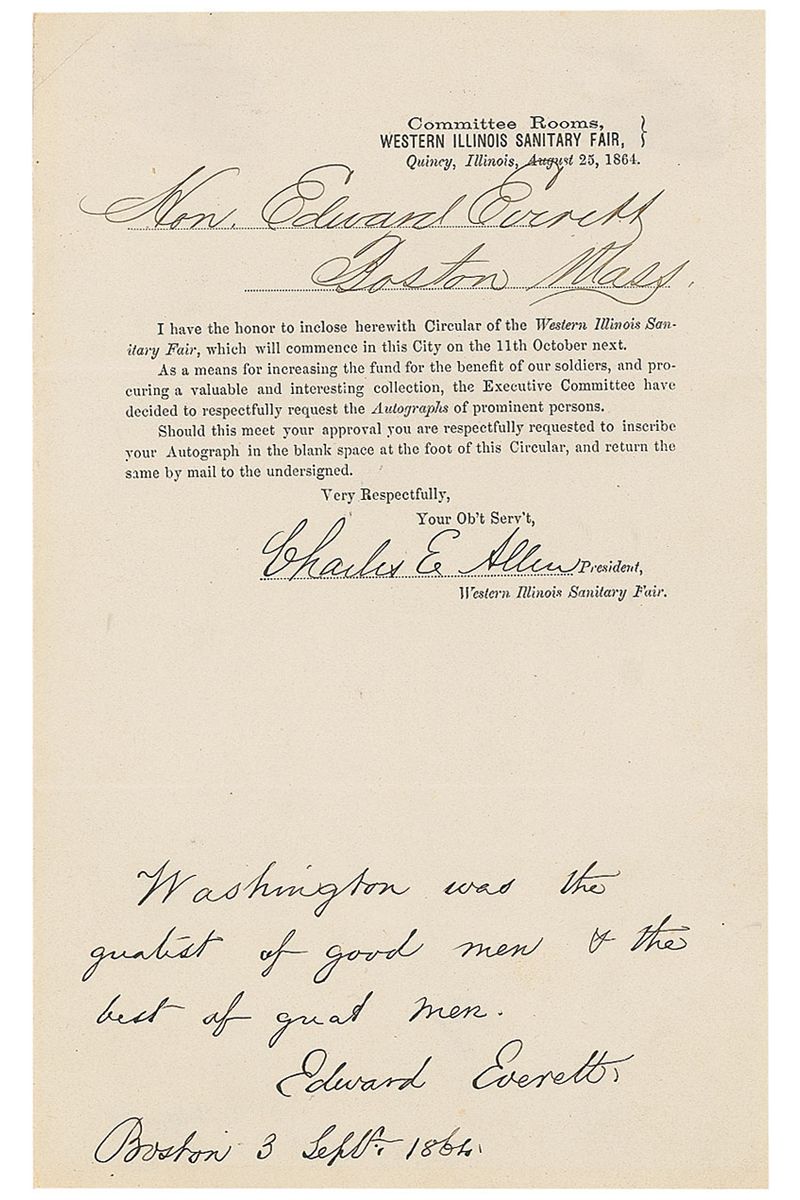 Committee Rooms,
WESTERN ILLINOIS SANITARY FAIR,
Quincy, Illinois, August 25, 1864.
Hon. Edward Everett
Boston Mass.
I have the honor to inclose herewith Circular of the Western Illinois San-
itary Fair, which will commence in this City on the 11th October next.
As a means for increasing the fund for the benefit of our soldiers, and pro-
curing a valuable and interesting collection, the Executive Committee have
decided to respectfully request the Autographs of prominent persons.
Should this meet your approval you are respectfully requested to inscribe
your Autograph in the blank space at the foot of this Circular, and return the
same by mail to the undersigned.
Very Respectfully,
Your Ob't Serv't,
Charles E Allen President,
Western Illinois Sanitary Fair.
Washington was the
greatest of good men & the
best of great men.
Edward Everett.
Boston 3 Sept. 1864.